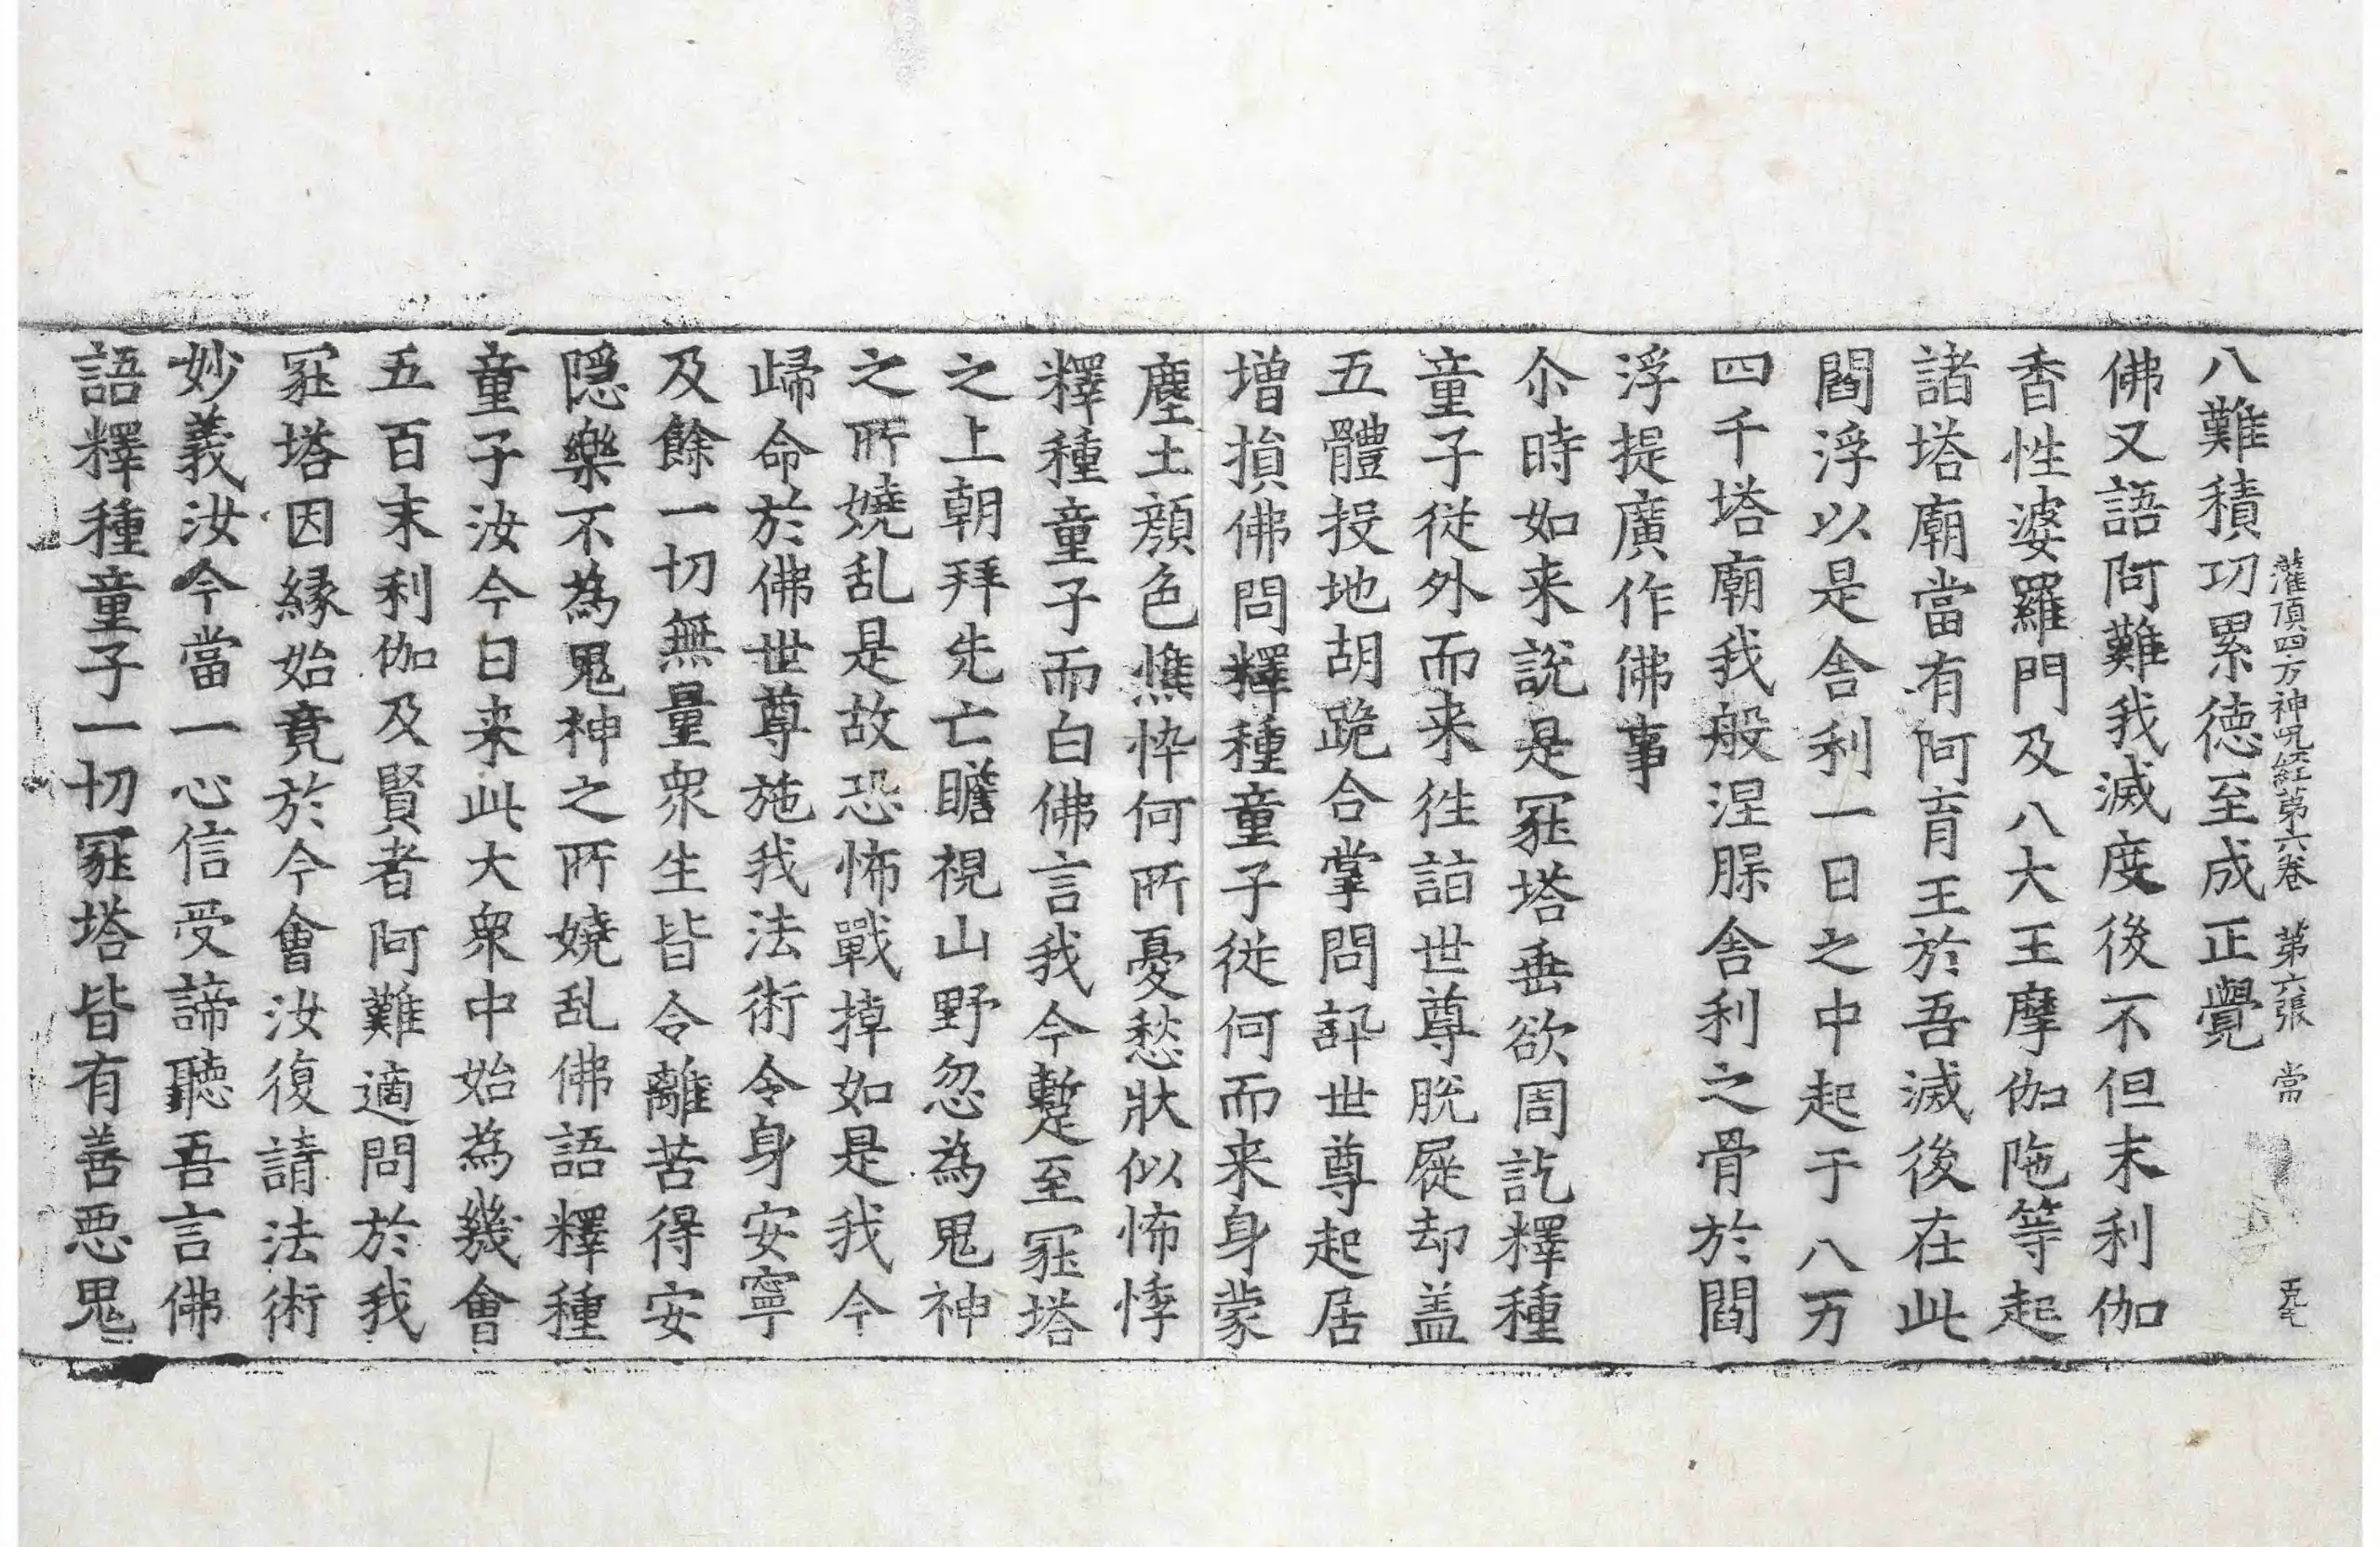 八難積功累德至成正覺
灌頂四方神呪経第六卷 第六張 常
佛又語阿難我滅度後不但末利伽
香性婆羅門及八大王摩伽陁等起
諸塔廟當有阿育王於吾滅後在此
閻浮以是舎利一日之中起于八万
四千塔廟我般涅脲舎利之骨於閻
浮提廣作佛事
尒時如来說是冢塔垂欲周訖釋種
童子従外而来徃詣世尊脫屣却盖
五體投地胡跪合掌問訊世尊起居
増損佛問釋種童子従何而来身蒙
塵土顔色憔悴何所憂愁狀似怖悸
釋種童子而白佛言我今蹔至冢塔
之上朝拜先亡瞻視山野忽為鬼神
之所嬈乱是故恐怖戰掉如是我今
歸命於佛世尊施我法術令身安寧
及餘一切無量衆生皆令離苦得安
隠樂不為鬼神之所嬈乱佛語釋種
童子汝今日来此大衆中始為幾會
五百末利伽及賢者阿難適問於我
冢塔因縁始竟於今會汝復請法術
妙義汝今當一心信受諦聽吾言佛
語釋種童子一切冢塔皆有善惡鬼